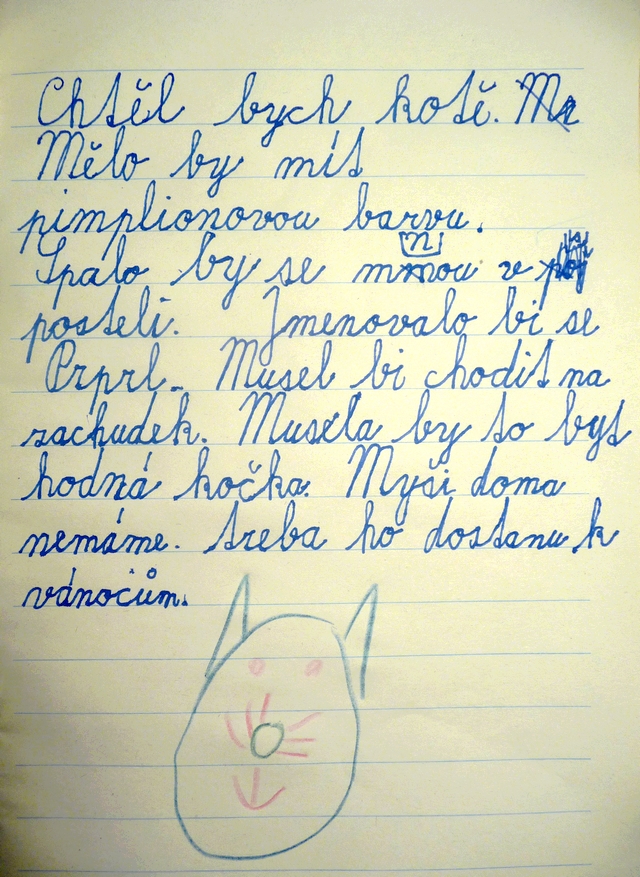 Chtěl bych kotě.
Mělo by mít
pimplionovou barvu.
Spalo by se mnou v
posteli. Jmenovalo bi se
Prprl. Musel bi chodit na
zachudek. Musela by to byt
hodná kočka. Myši doma
nemáme. třeba ho dostanu k
vánocům.